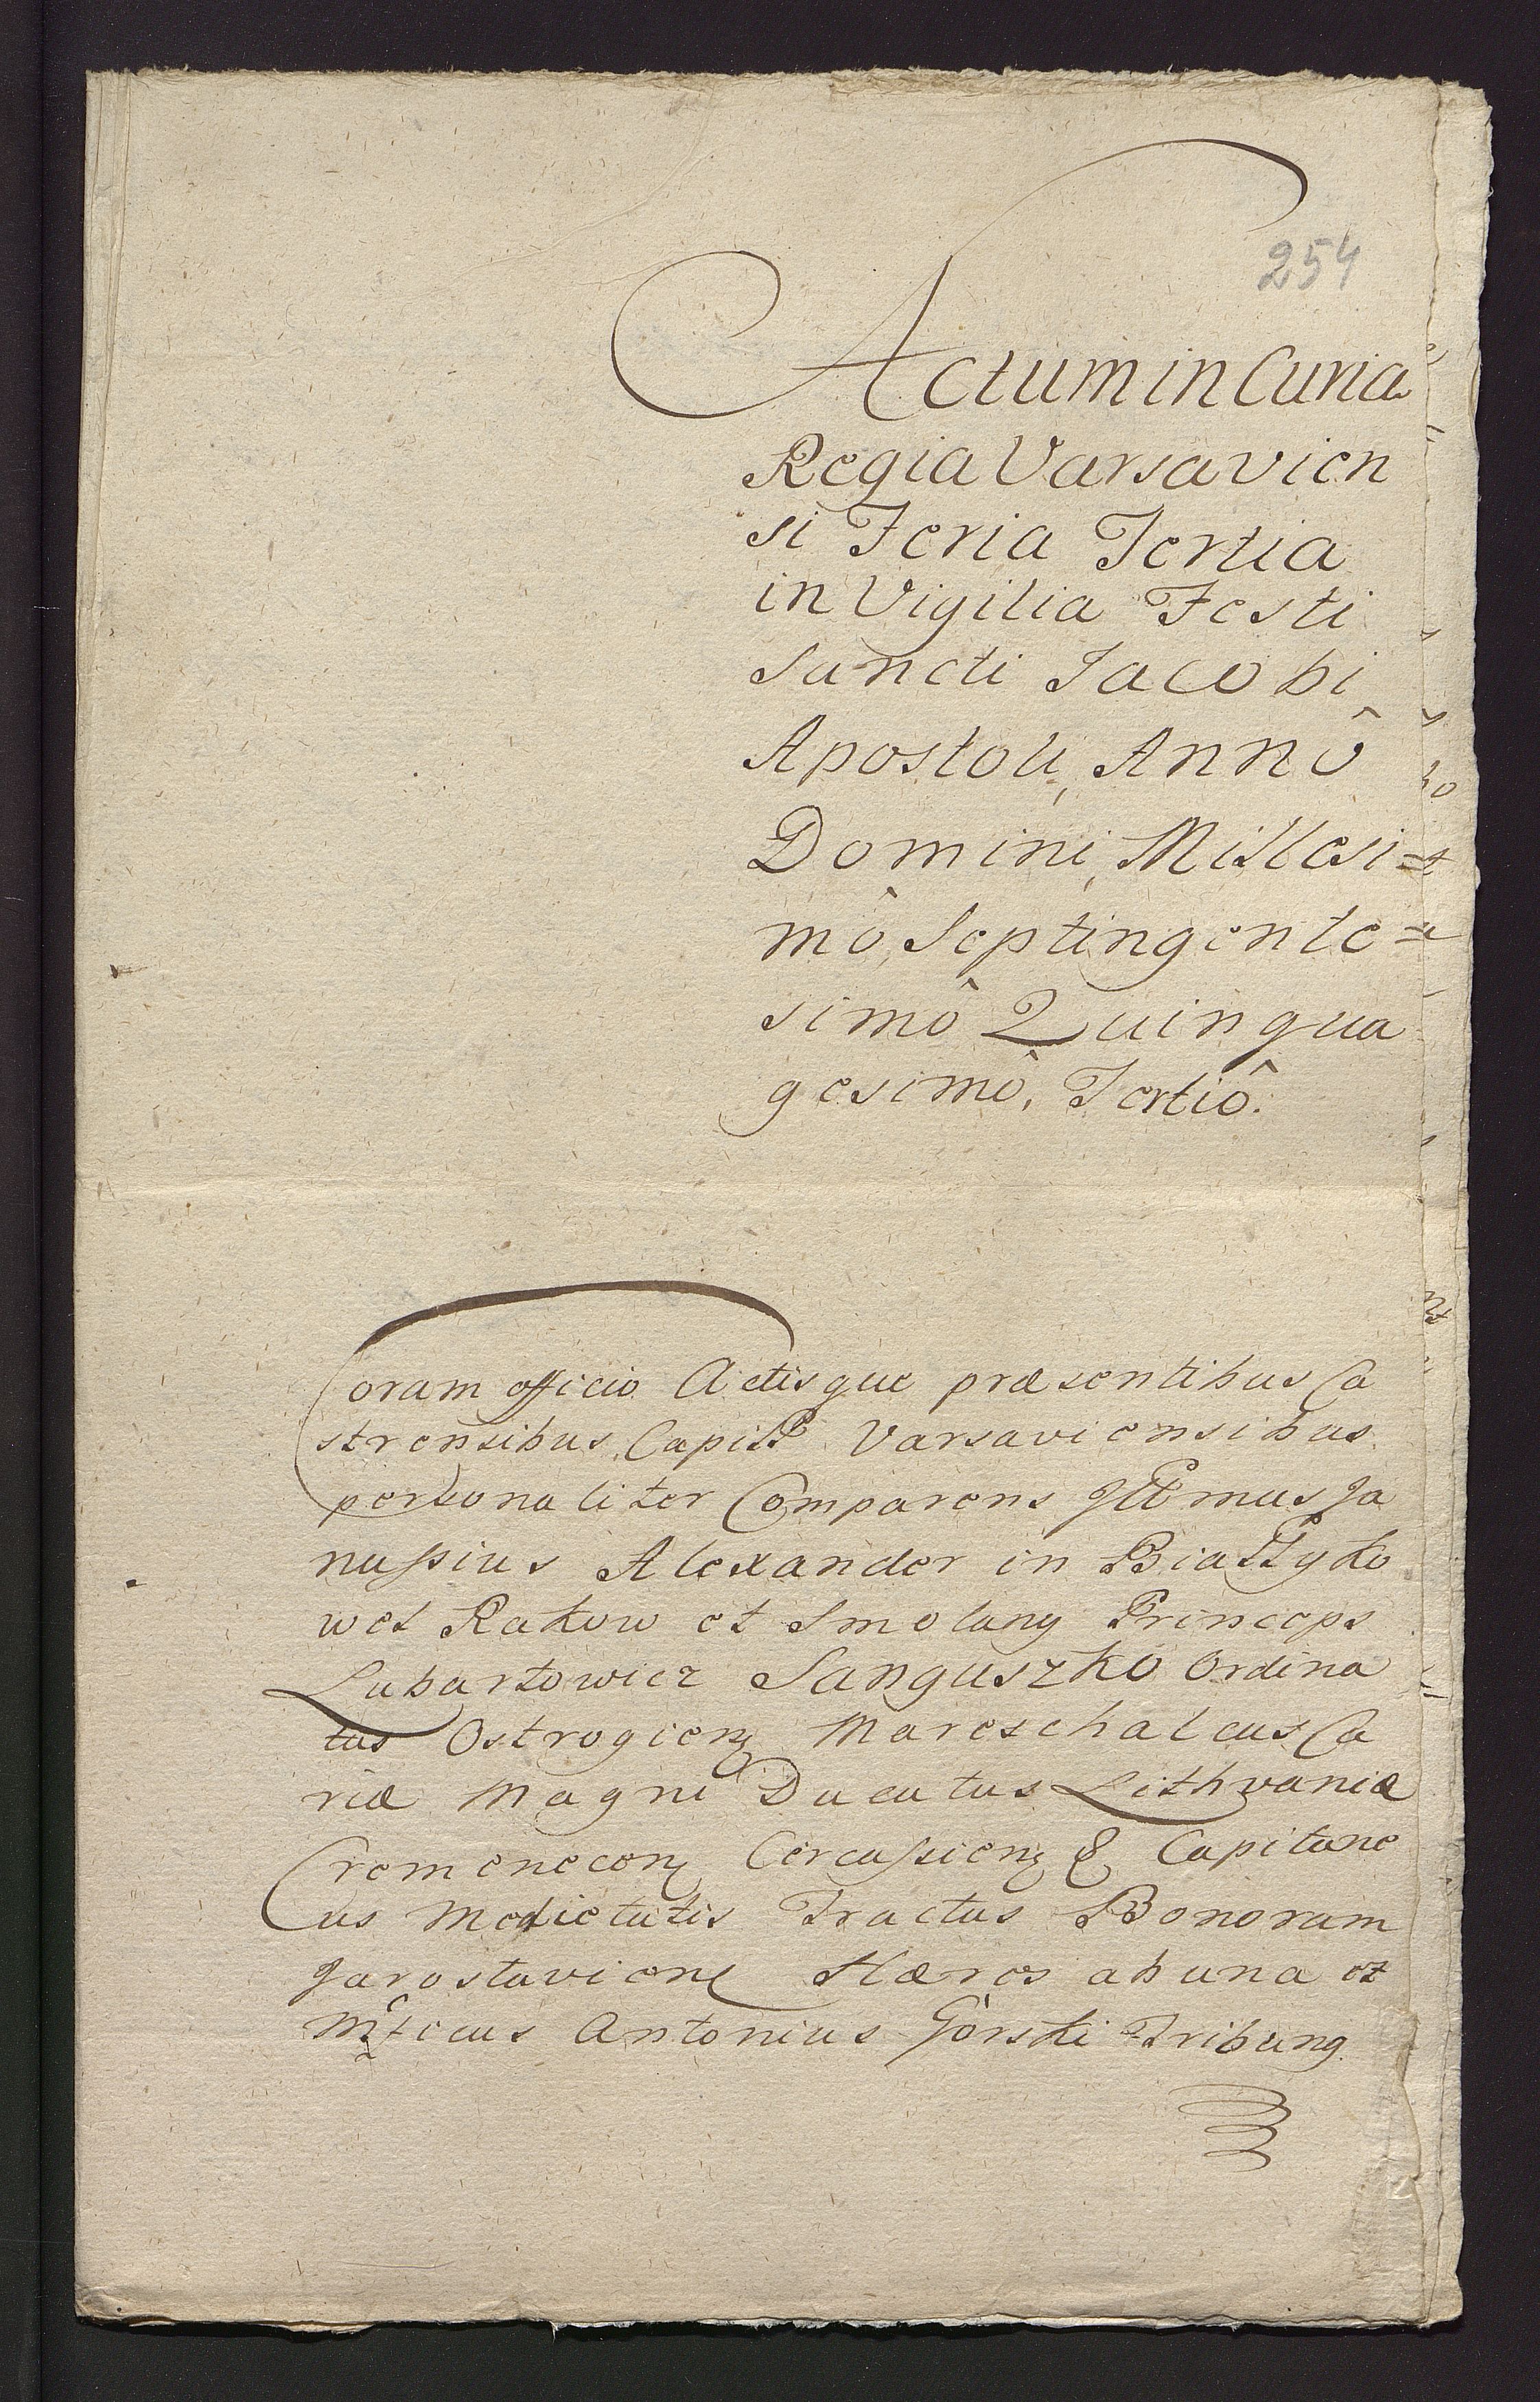 254
Actum in Curia
Regia Varsavien
si Feria Tertia
in Vigilia Festi
Sancti Jacobi
Apostoli, Annô
Domini, Millesi=
mô, Septingente=
simô Quinqua
gesimô, Tertiô.
Coram officio Actisque præsentibus Ca
strensibus, Capitt Varsaviensibus
personaliter Comparens Jllmus Ja
nussius Alexander in Białłyko
wet Rakow et Smolany Princeps
Lubartowicz Sanguszko Ordina
tus Ostrogien Mareschalcus Cu
riæ Magni Ducatus Lithvaniæ
Cremenecen Cercassien & Capitane
us Medietatis Tractus Bonorum
Jaroslavien Hæres ab una et
Mfcus Antonius Górski Tribung